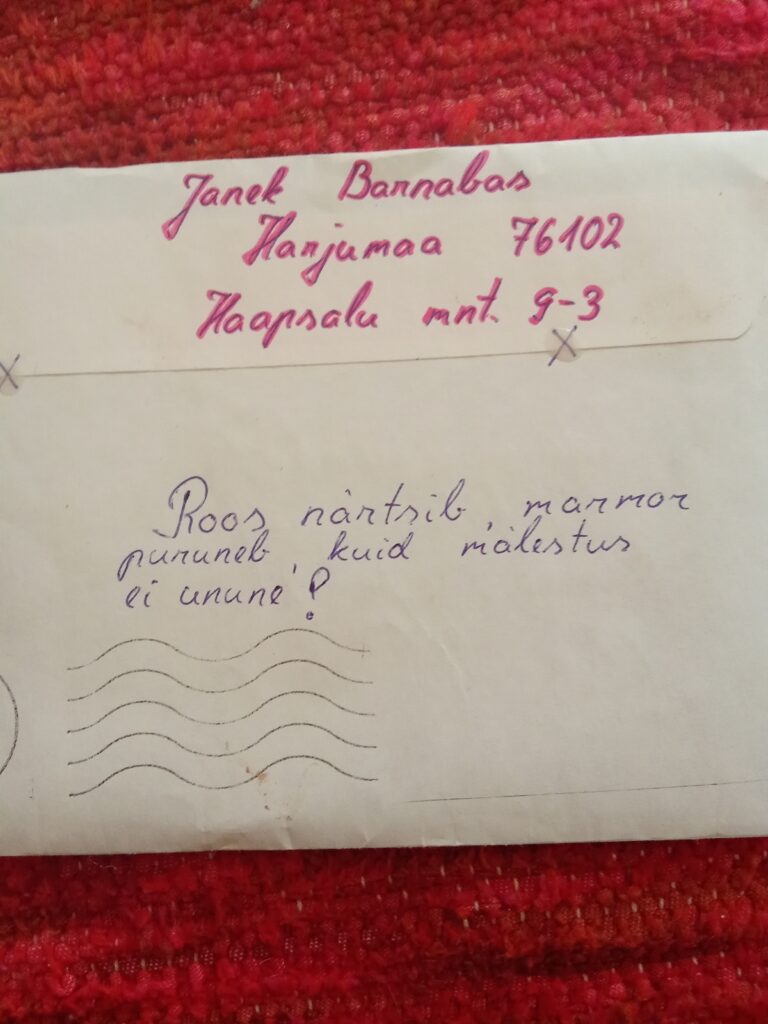 Janek Barnabas
Harjumaa 76102
Haapsalu mnt. 9-3
Roos närtsib, marmor
puruneb, kuid mälestus
ei unune!